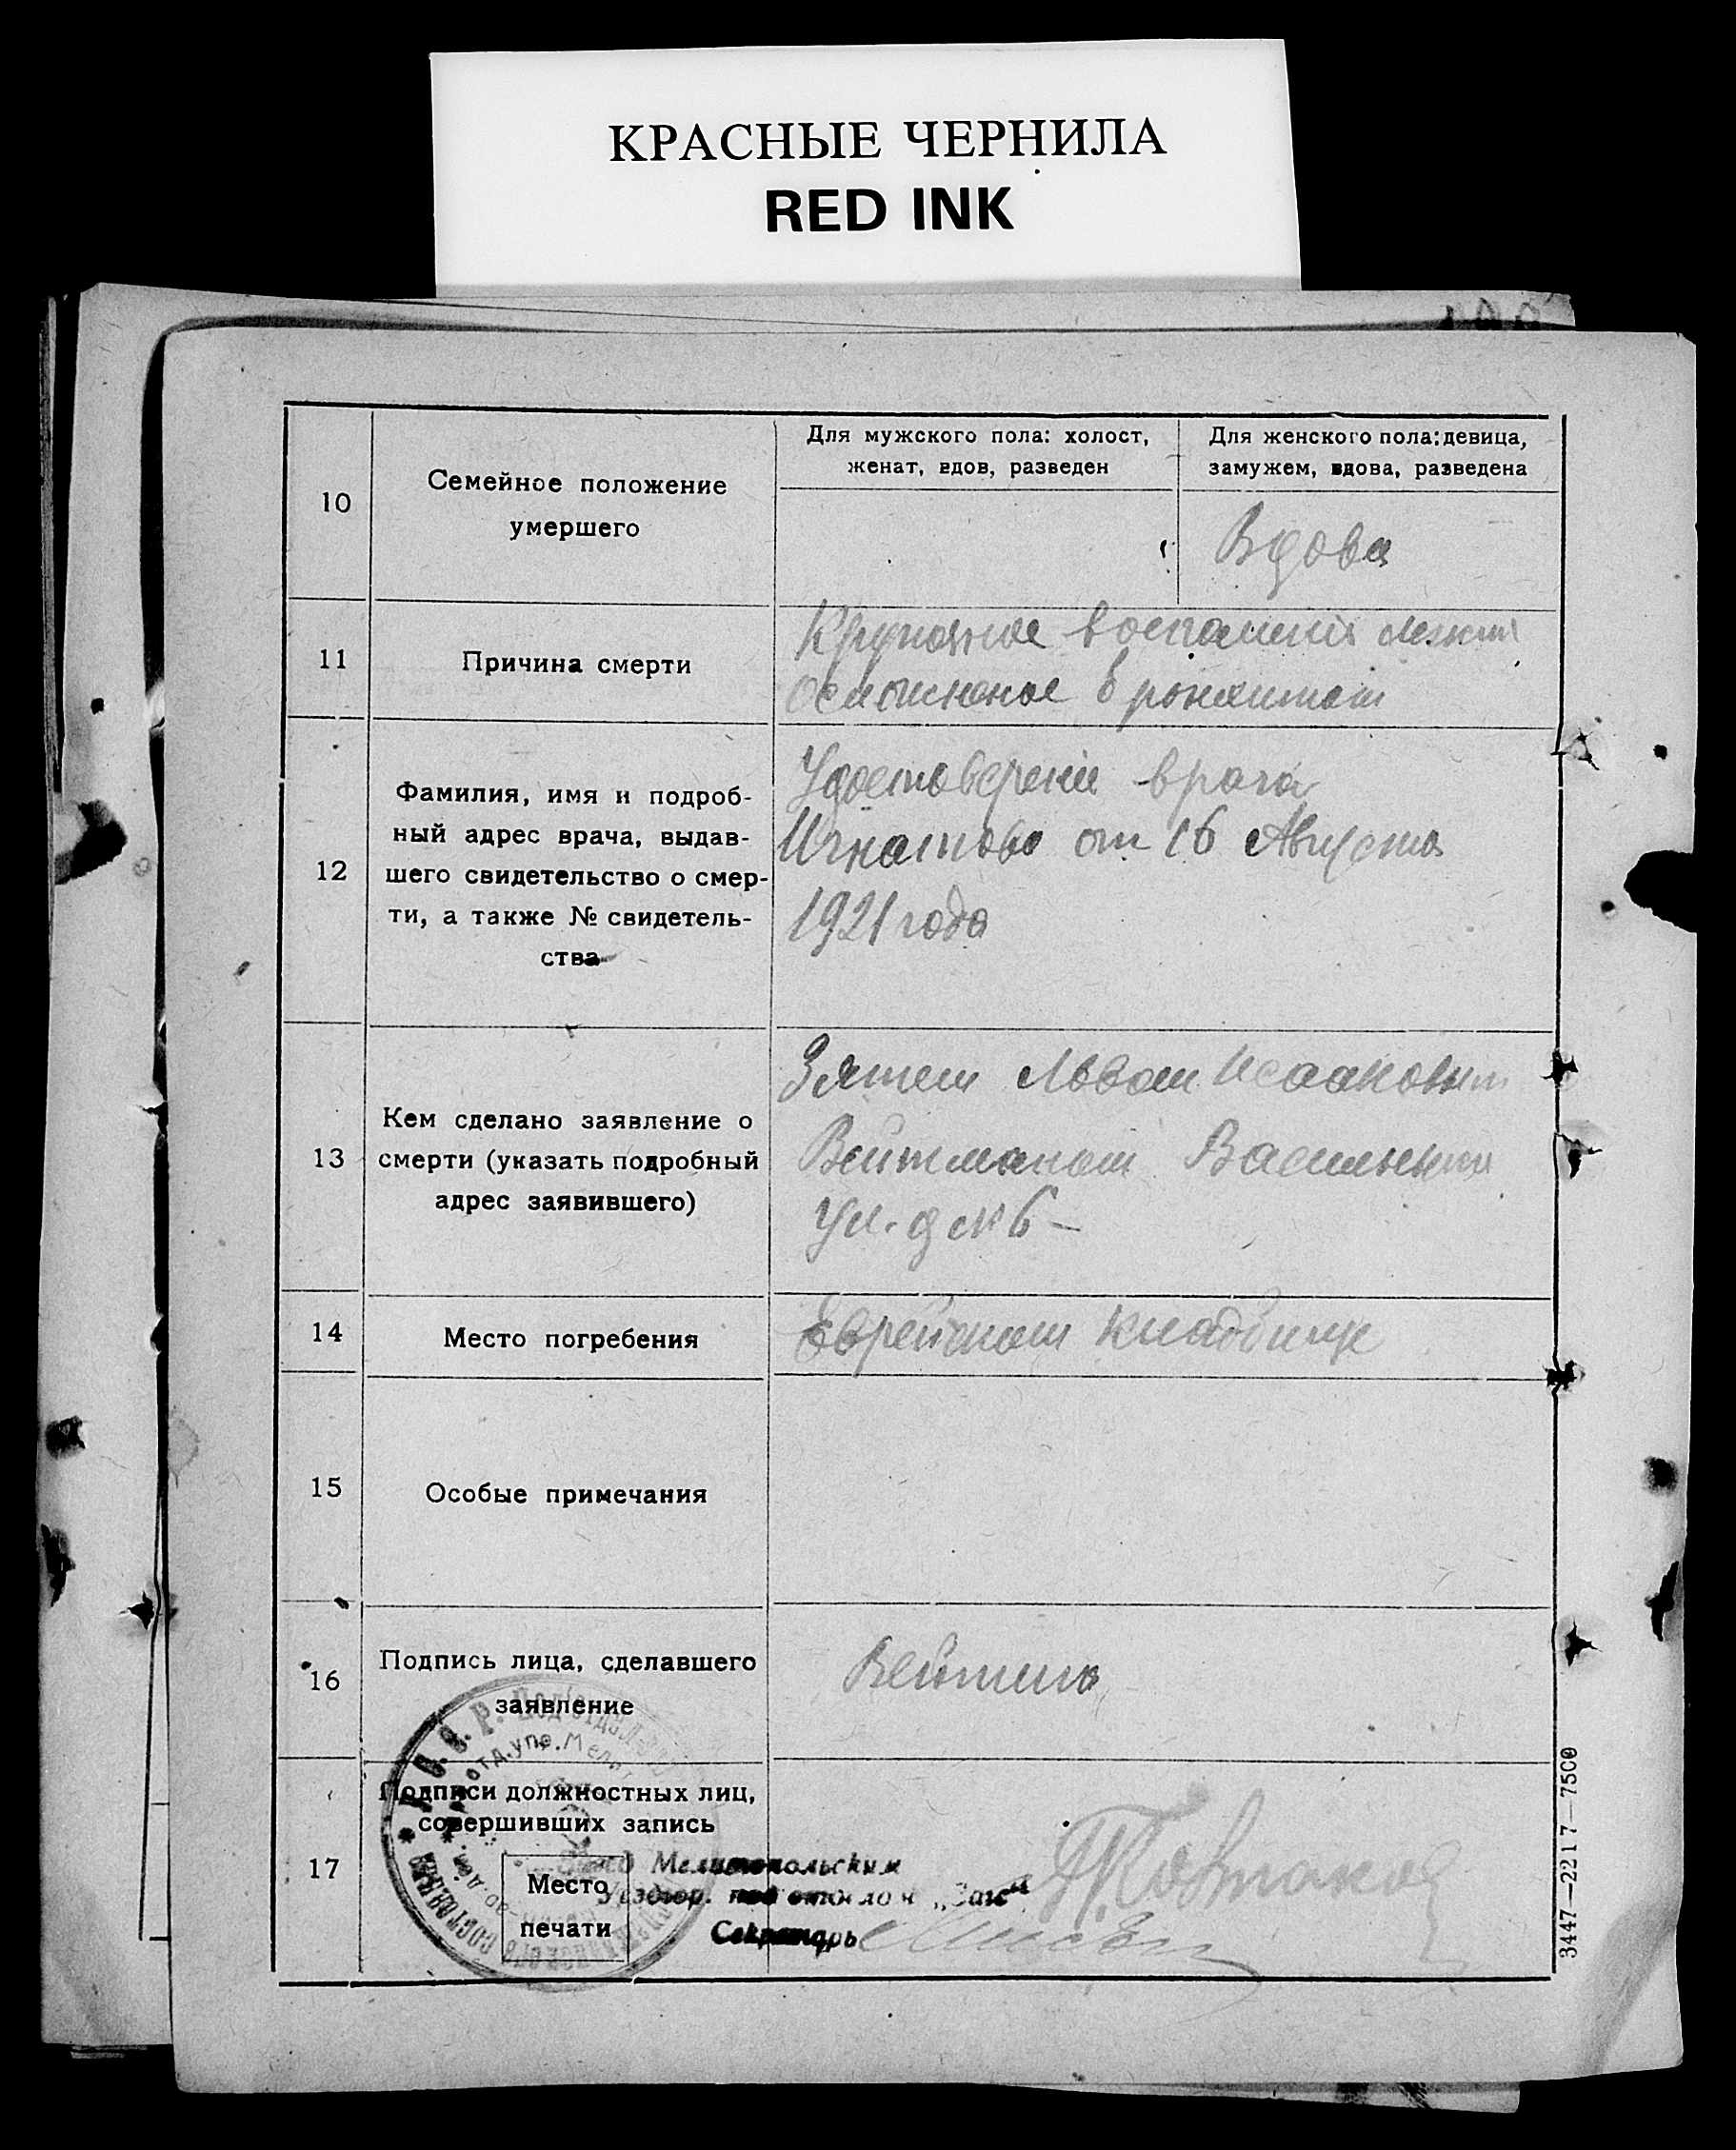 КРАСНЫЕ ЧЕРНИЛА
RED INK
10
Семейное положение
умершего
Для мужского пола: холост,
женат, вдов, разведен
Для женского пола: девица,
замужем, вдова, разведена
Вдова
11
Причина смерти
Крупозное воспаление легких
осложненое бронхитом
12
Фамилия, имя и подроб-
ный адрес врача, выдав-
шего свидетельство о смер-
ти, а также № свидетель-
ства
Удостоверение врача
Игнатова от 16 Августа
1921 года
13
Кем сделано заявление о
смерти (указать подробный
адрес заявившего)
Зятем Львом Исааковичем
Вейтманом
Ул. д № 6 –
14
Место погребения
Еврейском кладбище
15
Особые примечания
16
Подпись лица, сделавшего
заявление
17
Подписи должностных лиц,
совершивших запись
Место
печати
Мелитопольским
под отделом „Загс“
Секретарь
3447—2217—7500